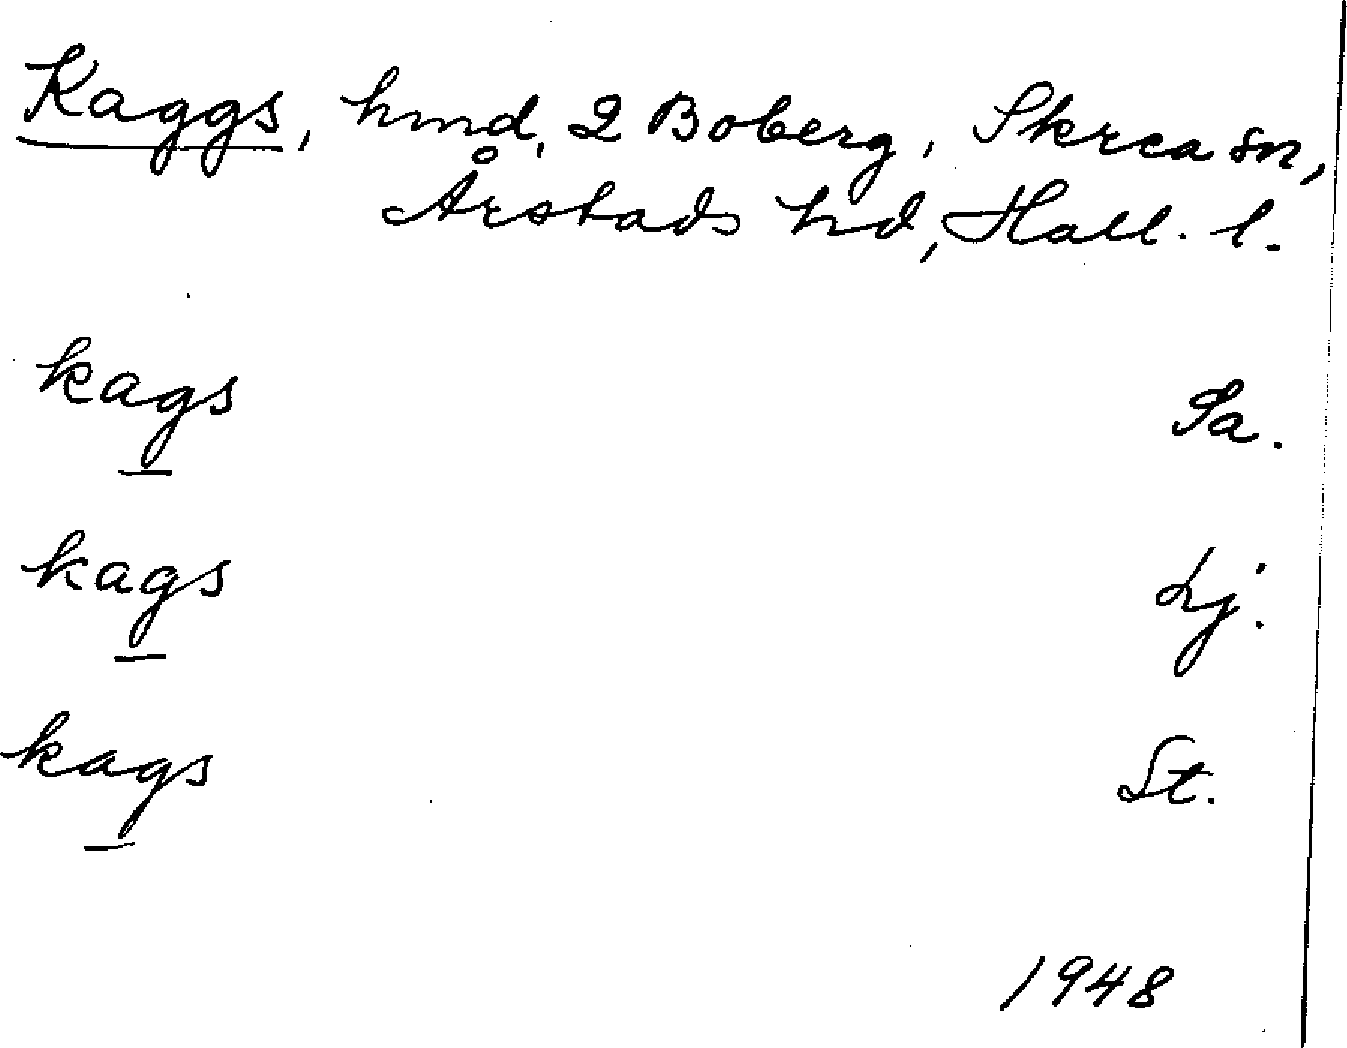 Kaggs, hmd, 2 Boberg, Skrea sn,
Årstads hd, Hall. l.
kags Sa.
kags Lj.
kags St.
1948